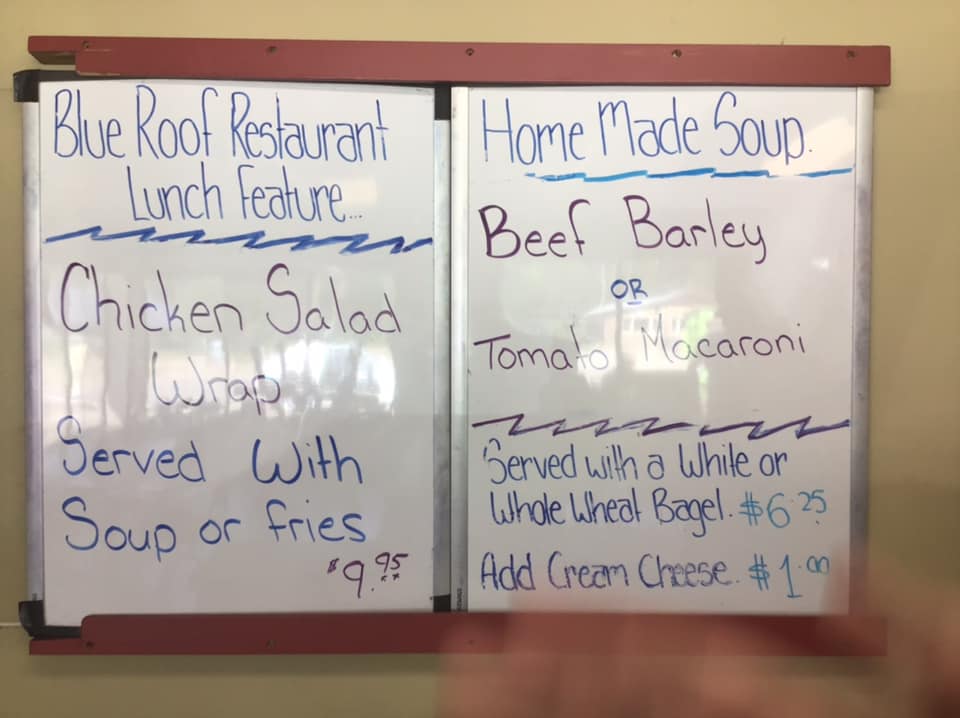 Blue Roof Restaurant
Lunch Feature...
Chicken Salad
Wrap
Served With
Soup or fries
$9.95
Home Made Soup.
Beef Barley
OR
Tomato Macaroni
Served with a White or
Whole Wheat Bagel. $6.25
Add Cream Cheese. $1.00